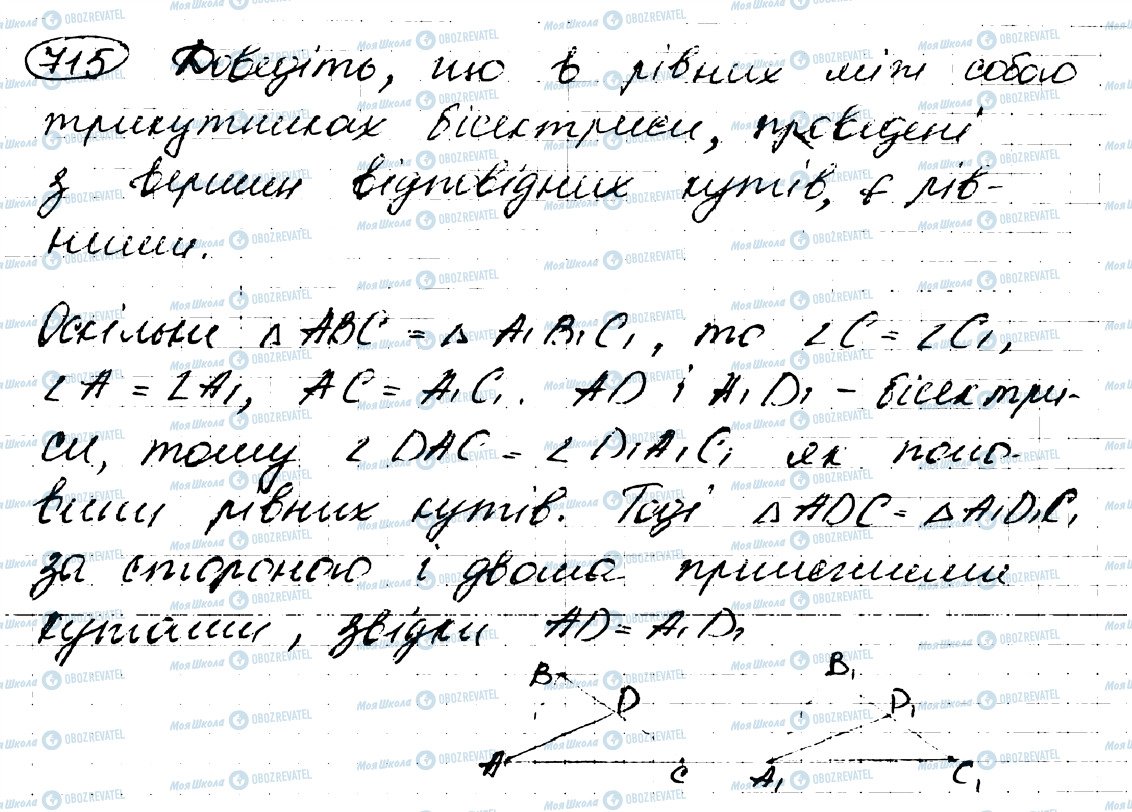 715 Доведіть, що в рівних між собою
трикутниках бісектриси, проведені
з вершин відповідних кутів, є рів-
ними.
Оскільки △ ABC = △ A₁B₁C₁, то ∠C = ∠C₁,
∠A = ∠A₁, AC = A₁C₁. AD і A₁D₁ – бісектри-
си, тому ∠DAC = ∠D₁A₁C₁ як поло-
вини рівних кутів. Тоді △ADC = △A₁D₁C₁
за стороною і двома прилеглими
кутами, звідки AD = A₁D₁
B B₁
D D₁
A C A₁ C₁
Моя Школа OBOZREVATEL